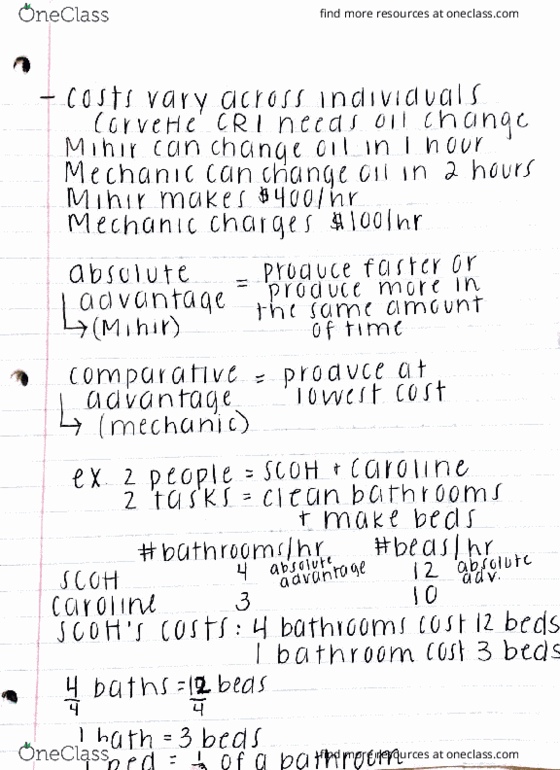 OneClass
find more resources at oneclass.com
- costs vary across individuals
Corvette CR1 needs oil change
Mihir can change oil in 1 hour
Mechanic can change oil in 2 hours
Mihir makes $400/hr
Mechanic charges $100/hr
absolute advantage = produce faster or
produce more in
the same amount
of time
↳(Mihir)
comparative advantage = produce at
lowest cost
↳ (mechanic)
ex 2 people = SCOH + caroline
2 tasks = clean bathrooms
+ make beds
#bathrooms/hr #beds/hr
SCOH 4 absolute advantage 12 absolute adv.
caroline 3 10
SCOH'S costs: 4 bathrooms cost 12 beds
1 bathroom cost 3 beds
4/4 baths = 12/4 beds
1 bath = 3 beds
1 bed = of a bathroom
OneClass
find more resources at oneclass.com